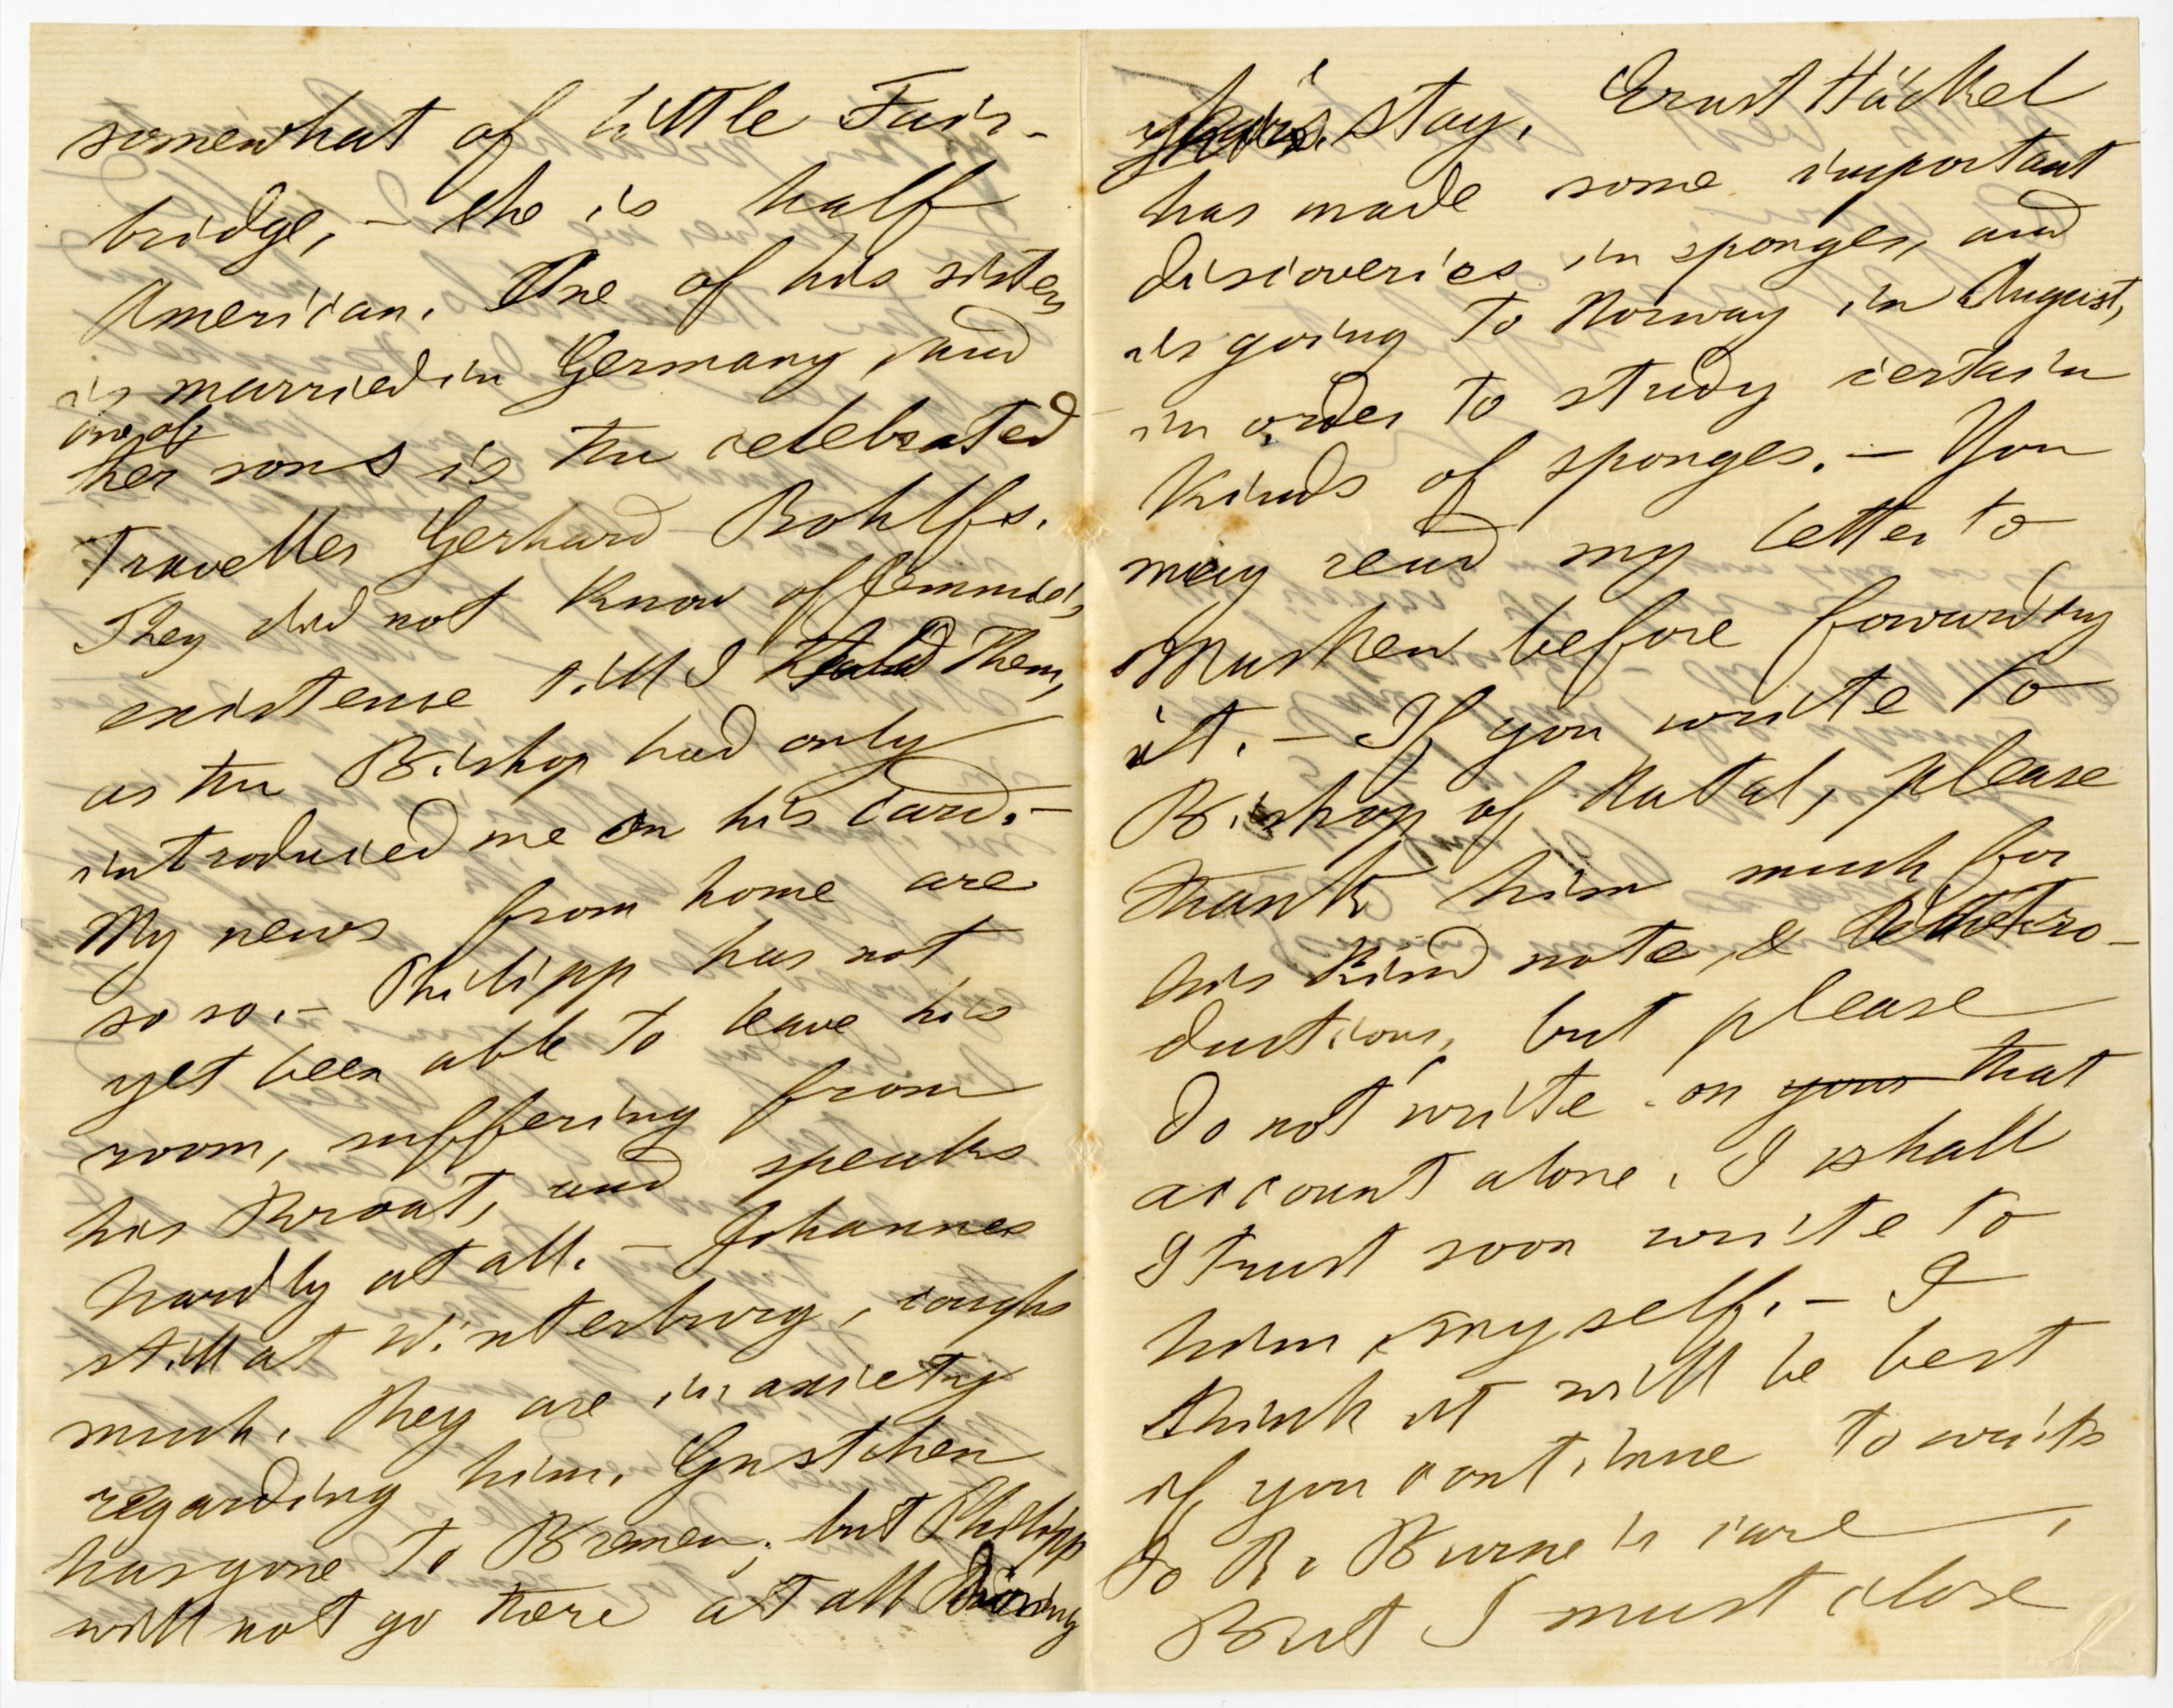 somewhat of little Fair-
bridge, – she is half
American. One of his sisters
is married in Germany, and
one of
her sons is the celebrated
Traveller Gerhard Rohlfs.
They did not know of Jemmie's
existence till I told them,
as the Bishop had only
introduced me on his card. –
My news from home are
so so. – Philipp has not
yet been able to leave his
room, suffering from
his throat, and speaks
hardly at all. – Johannes
still at Winterburg, coughs
much. They are in anxiety
regarding him. Gustchen
has gone to Bremen; but Philipp
will not go there at all during
stay. Ernst Häckel
has made some important
discoveries in sponges, and
is going to Norway in August,
in order to study certain
Kinds of sponges. – You
may read my letter to
before forwarding
it. – If you write to
Bishop of Natal, please
thank him much for
his kind note, & intro-
ductions, but please
do not write on your that
account alone. I shall
I trust soon write to
him myself. – I
think it will be best
if you continue to write
to R. Burne's care,
But I must close